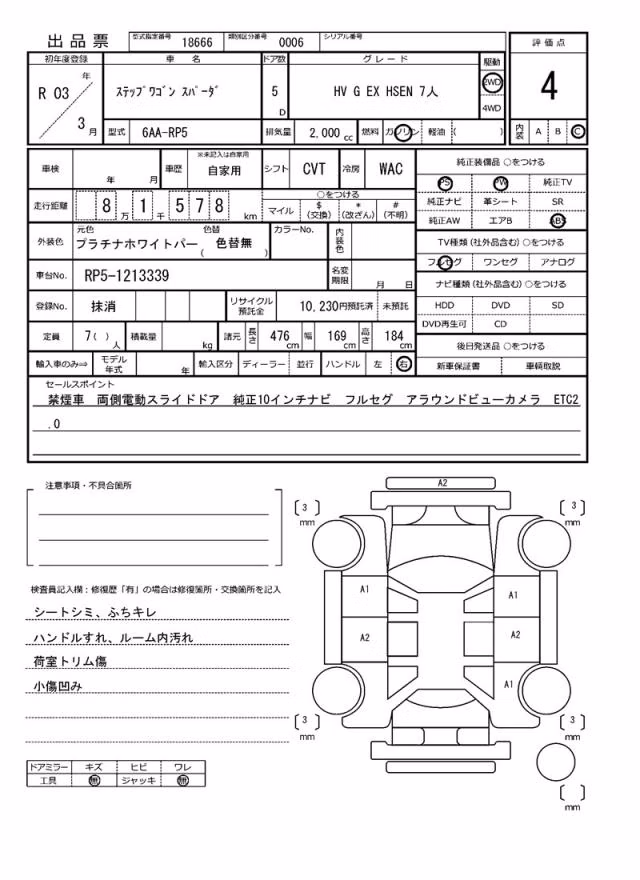 出品票 型式指定番号 18666 類別区分番号 0006 シリアル番号
初年度登録 車名 ドア数 グレード 駆動 評価点
R 03 年 3 月 ｽﾃｯﾌﾟﾜｺﾞﾝ ｽﾊﾟｰﾀﾞ 5 D HV G EX HSEN 7人 2WD 4WD 4
型式 6AA-RP5 排気量 2,000 cc 燃料 ガソリン 軽油 ( ) 内装 A B C
車検 年 月 車歴 ※未記入は自家用 自家用 シフト CVT 冷房 WAC
純正装備品 ○をつける
PS PW 純正TV
純正ナビ 革シート SR
純正AW エアB ABS
走行距離 8 万 1 千 5 7 8 km
○をつける
マイル $ (交換) * (改ざん) # (不明)
TV種類 (社外品含む) ○をつける
フルセグ ワンセグ アナログ
外装色 元色 プラチナホワイトパー 色替 ( 色替無 ) カラーNo. 内装色
車台No. RP5-1213339 名変期限 月 日
ナビ種類 (社外品含む) ○をつける
HDD DVD SD
DVD再生可 CD
登録No. 抹消 リサイクル預託金 10,230円預託済 未預託
定員 7( ) 人 積載量 kg 諸元 長さ 476 cm 幅 169 cm 高さ 184 cm
後日発送品 ○をつける
新車保証書 車輌取説
輸入車のみ⇒ モデル年式 年 輸入区分 ディーラー 並行 ハンドル 左 右
セールスポイント
禁煙車 両側電動スライドドア 純正10インチナビ フルセグ アラウンドビューカメラ ETC2
.0
注意事項・不具合箇所
検査員記入欄：修復歴「有」の場合は修復箇所・交換箇所を記入
シートシミ、ふちキレ
ハンドルすれ、ルーム内汚れ
荷室トリム傷
小傷凹み
ドアミラー キズ ヒビ ワレ
工具 無 ジャッキ 無
A2
3 mm 3 mm
A1 A1
A2 A2
A1
3 mm 3 mm
mm